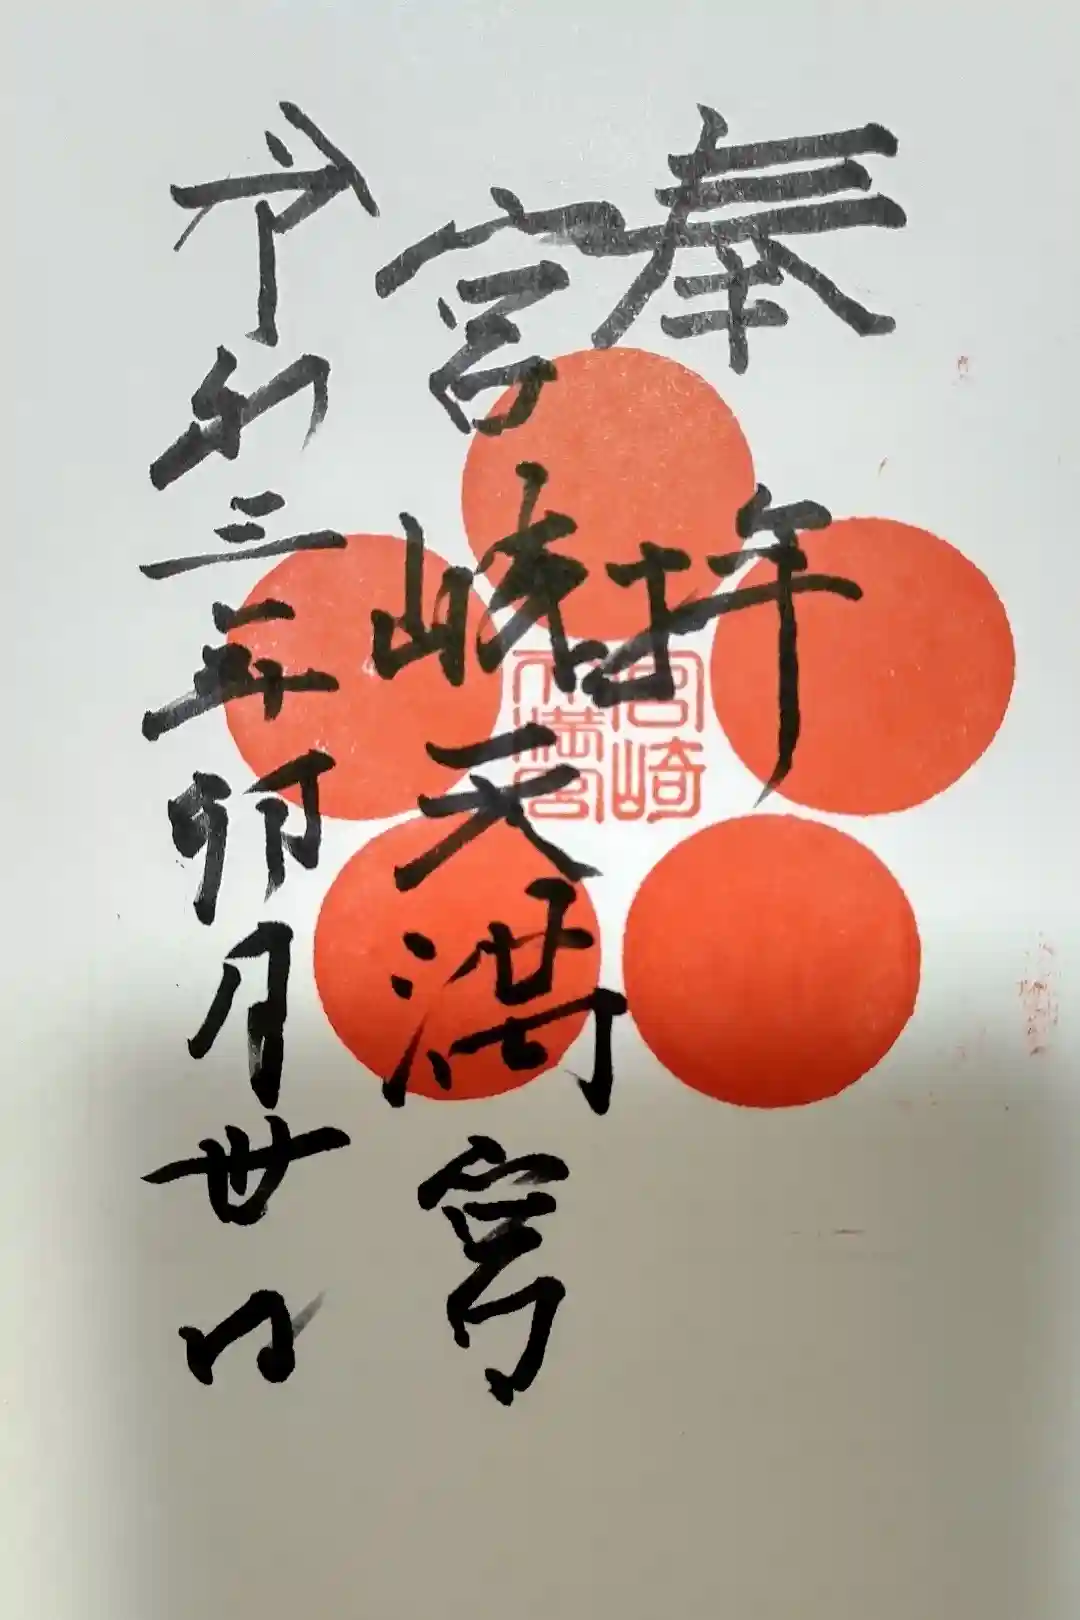 奉拝
宮崎天満宮
令和三年卯月廿日
宮崎
天満宮